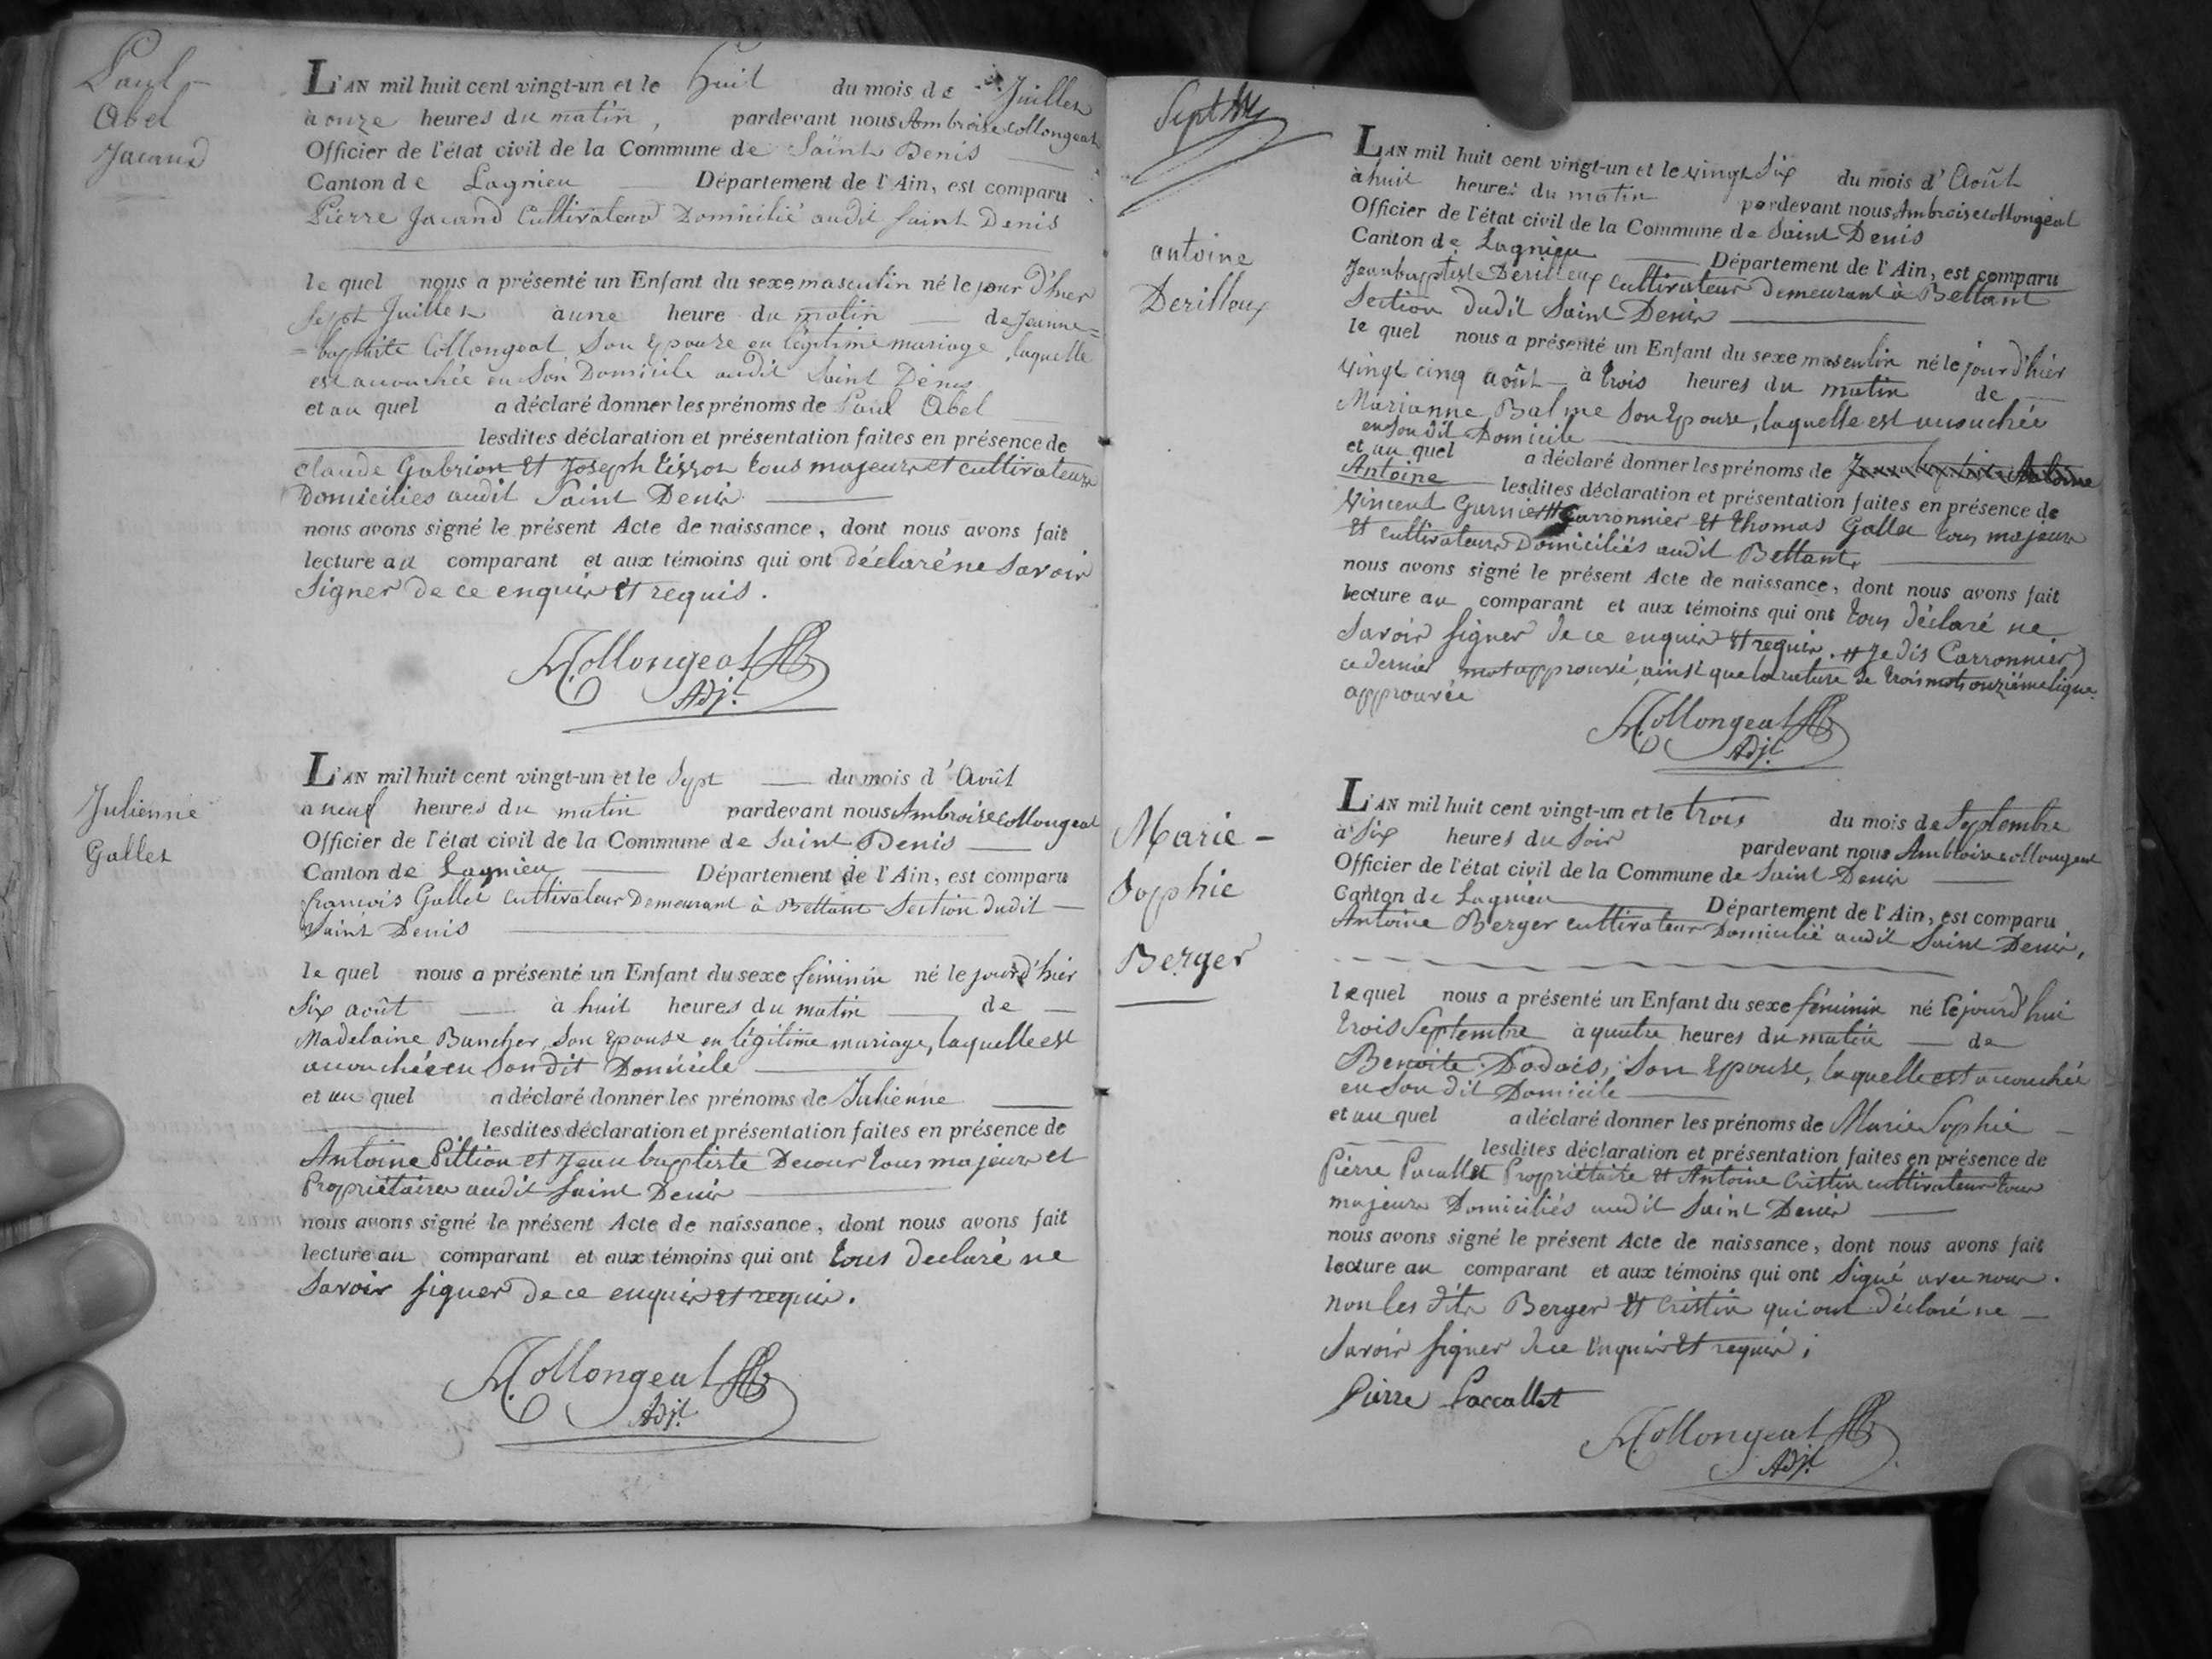 Paul
Abel
Jacand
L'AN mil huit cent vingt-un et le huit du mois de Juillet
à onze heures du matin, pardevant nous Ambroise Collongeat
Officier de l'état civil de la Commune de Saint Denis
Canton de Lagnieu Département de l'Ain, est comparu
Pierre Jacand Cultivateur Domicilié audit Saint Denis
lequel nous a présenté un Enfant du sexe masculin né le jour d'hier
Sept Juillet à une heure du matin de Jeanne=
=baptiste Collongeat Son Epouse en légitime mariage, laquelle
est accouchée en son Domicile audit Saint Denis
et au quel a déclaré donner les prénoms de Paul Abel
lesdites déclaration et présentation faites en présence de
Claude Gabrion et Joseph Tissot tous majeurs et cultivateurs
Domiciliés audit Saint Denis
nous avons signé le présent Acte de naissance, dont nous avons fait
lecture au comparant et aux témoins qui ont déclaré ne Savoir
Signer de ce enquis et requis.
A. Collongeat
Adj.t
Julienne
Gallet
L'AN mil huit cent vingt-un et le Sept du mois d'Août
a neuf heures du matin pardevant nous Ambroise Collongeat
Officier de l'état civil de la Commune de Saint Denis
Canton de Lagnieu Département de l'Ain, est comparu
françois Gallet Cultivateur Demeurant à Bettant Section dudit
Saint Denis
lequel nous a présenté un Enfant du sexe féminin né le jour d'hier
Six août à huit heures du matin de
Madelaine Buncher, Son Epouse en légitime mariage, laquelle est
accouchée en Son dit Domicile
et au quel a déclaré donner les prénoms de Julienne
lesdites déclaration et présentation faites en présence de
Antoine Pittion et Jean baptiste Decour tous majeurs et
Propriétaires audit Saint Denis
nous avons signé le présent Acte de naissance, dont nous avons fait
lecture au comparant et aux témoins qui ont tous declaré ne
Savoir signer de ce enquis et requis.
A. Collongeat
Adj.t
antoine
Derilloux
L'AN mil huit cent vingt-un et le vingt Six du mois d'Août
à huit heures du matin pardevant nous Ambroise Collongeat
Officier de l'état civil de la Commune de Saint Denis
Canton de Lagnieu Département de l'Ain, est comparu
Jean baptiste Derilloux cultivateur demeurant à Bettant
Section dudit Saint Denis
le quel nous a présenté un Enfant du sexe masculin né le jour d'hier
vingt cinq août à trois heures du matin de
Marianne Balme Son Epouse, laquelle est accouchée
en Son dit Domicile
et au quel a déclaré donner les prénoms de
Antoine lesdites déclaration et présentation faites en présence de
Vincent Garnier # Carronnier et thomas Gallet tous majeurs
et cultivateurs Domiciliés audit Bettant
nous avons signé le présent Acte de naissance, dont nous avons fait
lecture au comparant et aux témoins qui ont tous déclaré ne
Savoir signer de ce enquis et requis. # Je dis Carronnier
ce dernier mot approuvé, ainsi que la rature de trois mots onzième ligne
approuvée
A. Collongeat
Adj.t
Marie-
Sophie
Berger
L'AN mil huit cent vingt-un et le trois du mois de Septembre
à Six heures du Soir pardevant nous Ambroise Collongeat
Officier de l'état civil de la Commune de Saint Denis
Canton de Lagnieu Département de l'Ain, est comparu
Antoine Berger cultivateur Domicilié audit Saint Denis,
lequel nous a présenté un Enfant du sexe féminin né le jourd'hui
trois Septembre à quatre heures du matin de
Benoite Dadois, Son Epouse, laquelle est accouchée
en Son dit Domicile
et au quel a déclaré donner les prénoms de Marie Sophie
lesdites déclaration et présentation faites en présence de
Pierre Pacallet Propriétaire et Antoine Cristin cultivateur tous
majeurs Domiciliés audit Saint Denis
nous avons signé le présent Acte de naissance, dont nous avons fait
lecture au comparant et aux témoins qui ont Signé avec nous.
non les dits Berger et Cristin qui ont déclaré ne
Savoir Signer de ce Enquis et requis,
Pierre Paccallet
A. Collongeat
Adj.t